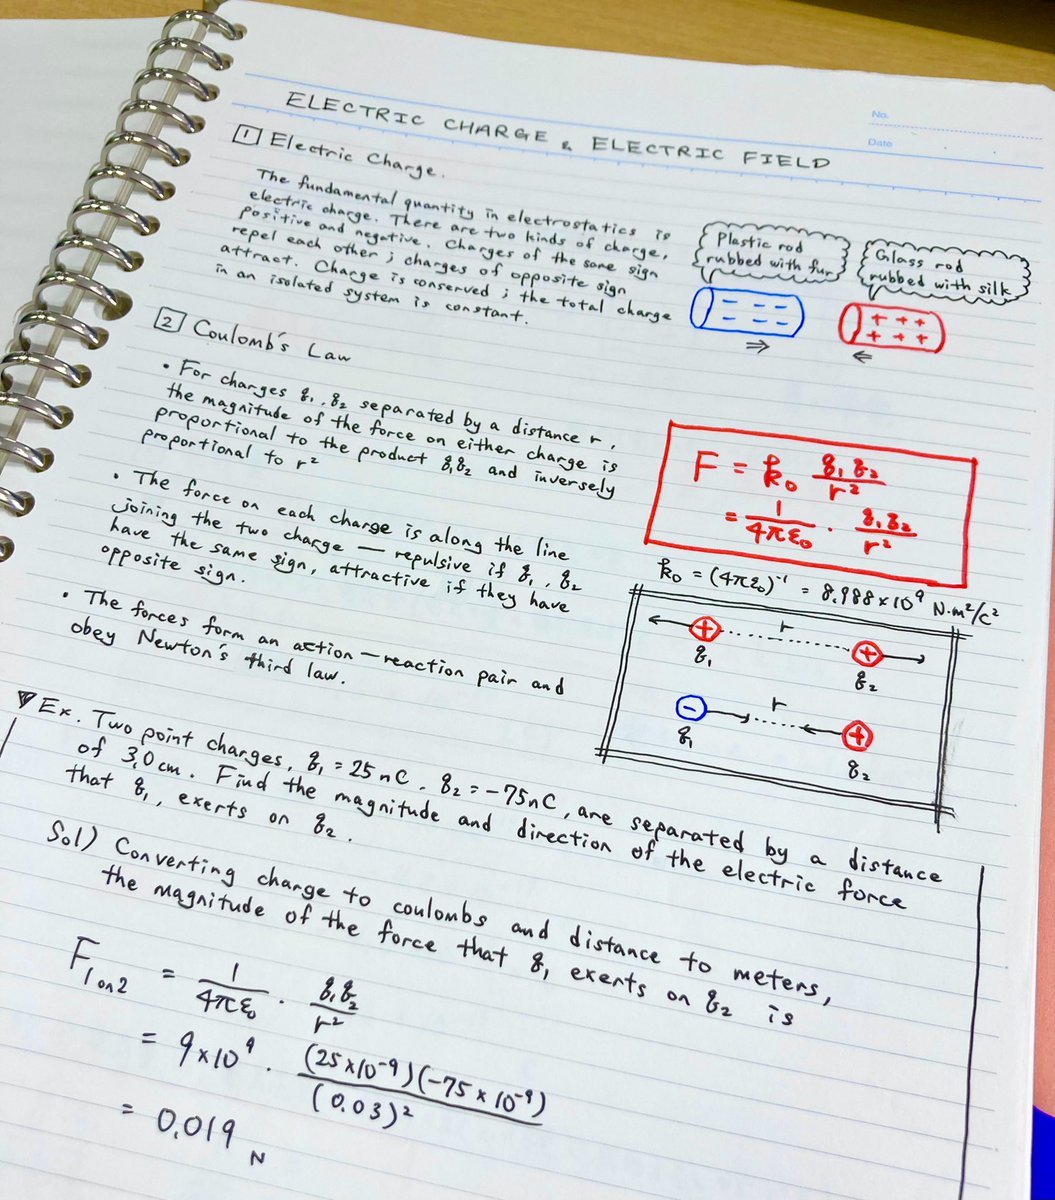 No.
Date
ELECTRIC CHARGE & ELECTRIC FIELD
1 Electric Charge.
The fundamental quantity in electrostatics is
electric charge. There are two kinds of charge,
positive and negative. Charges of the same sign
repel each other; charges of opposite sign
attract. Charge is conserved; the total charge
in an isolated system is constant.
Plastic rod
rubbed with fur
Glass rod
rubbed with silk
− − −
− − −
+ + +
+ + +
⇒
⇐
2 Coulomb's Law
• For charges q₁, q₂ separated by a distance r,
the magnitude of the force on either charge is
proportional to the product q₁q₂ and inversely
proportional to r²
• The force on each charge is along the line
joining the two charge — repulsive if q₁, q₂
have the same sign, attractive if they have
opposite sign.
• The forces form an action—reaction pair and
obey Newton's third law.
F = k₀ q₁q₂/r²
= 1/4πε₀ · q₁q₂/r²
k₀ = (4πε₀)⁻¹ = 8.988×10⁹ N·m²/c²
+ r +
q₁ q₂
− r +
q₁ q₂
▼Ex. Two point charges, q₁ = 25nC, q₂ = −75nC, are separated by a distance
of 3.0cm. Find the magnitude and direction of the electric force
that q₁, exerts on q₂.
Sol) Converting charge to coulombs and distance to meters,
the magnitude of the force that q₁ exerts on q₂ is
F₁ on 2 = 1/4πε₀ · q₁q₂/r²
= 9×10⁹ · (25×10⁻⁹)(−75×10⁻⁹)/(0.03)²
= 0.019 N